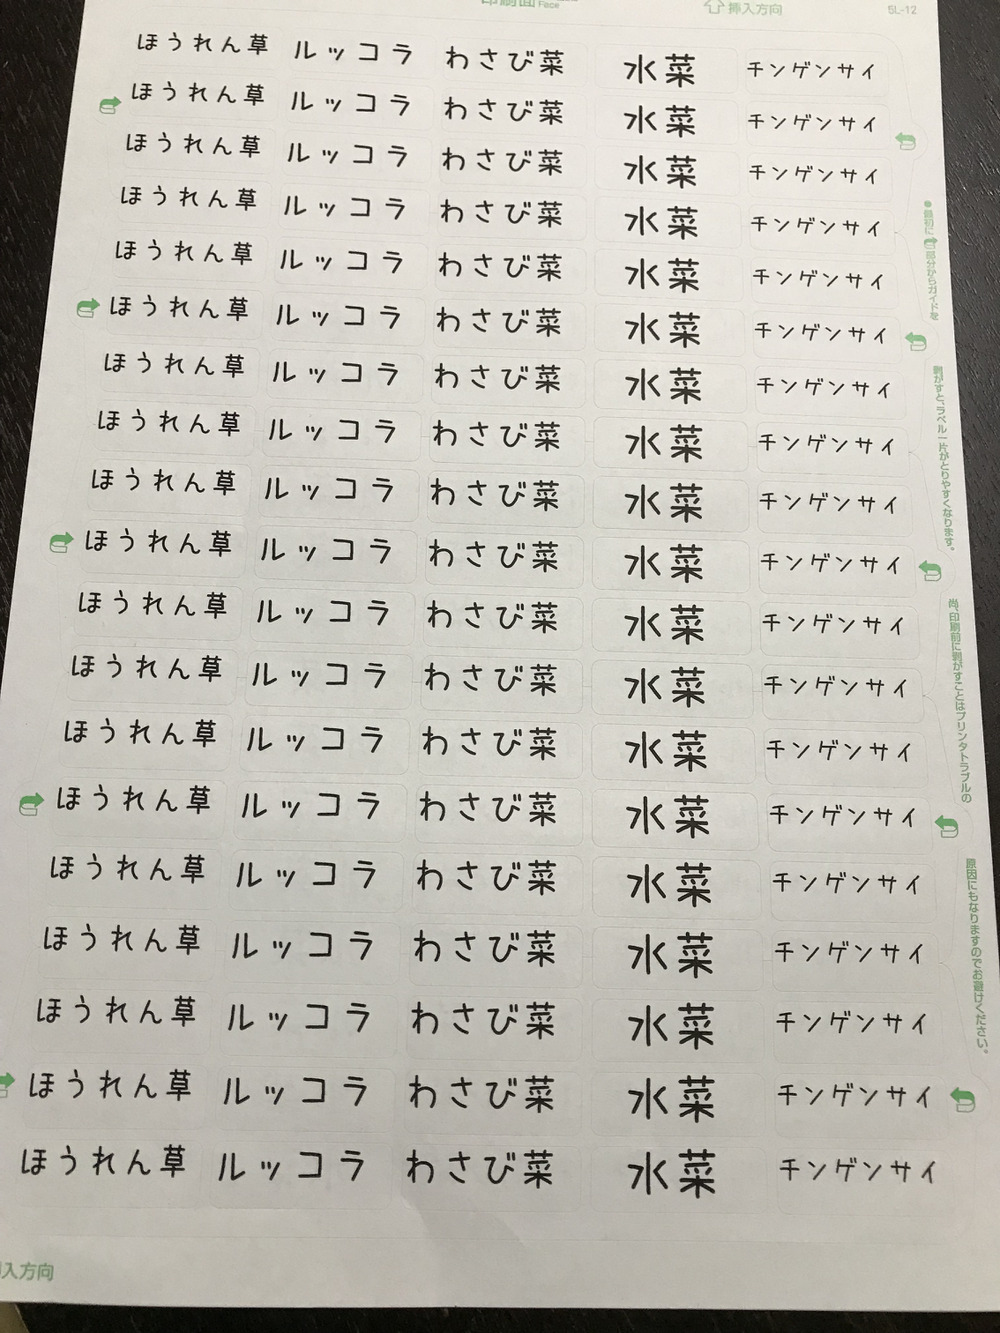 印刷面 Face 挿入方向 5L-12
ほうれん草 ルッコラ わさび菜 水菜 チンゲンサイ
ほうれん草 ルッコラ わさび菜 水菜 チンゲンサイ
ほうれん草 ルッコラ わさび菜 水菜 チンゲンサイ
ほうれん草 ルッコラ わさび菜 水菜 チンゲンサイ
ほうれん草 ルッコラ わさび菜 水菜 チンゲンサイ
ほうれん草 ルッコラ わさび菜 水菜 チンゲンサイ
ほうれん草 ルッコラ わさび菜 水菜 チンゲンサイ
ほうれん草 ルッコラ わさび菜 水菜 チンゲンサイ
ほうれん草 ルッコラ わさび菜 水菜 チンゲンサイ
ほうれん草 ルッコラ わさび菜 水菜 チンゲンサイ
ほうれん草 ルッコラ わさび菜 水菜 チンゲンサイ
ほうれん草 ルッコラ わさび菜 水菜 チンゲンサイ
ほうれん草 ルッコラ わさび菜 水菜 チンゲンサイ
ほうれん草 ルッコラ わさび菜 水菜 チンゲンサイ
ほうれん草 ルッコラ わさび菜 水菜 チンゲンサイ
ほうれん草 ルッコラ わさび菜 水菜 チンゲンサイ
ほうれん草 ルッコラ わさび菜 水菜 チンゲンサイ
ほうれん草 ルッコラ わさび菜 水菜 チンゲンサイ
ほうれん草 ルッコラ わさび菜 水菜 チンゲンサイ
●最初に 部分からガイドを
剥がすと、ラベル一片がとりやすくなります。
尚、印刷前に剥がすことはプリンタトラブルの
原因にもなりますのでお避けください。
入方向